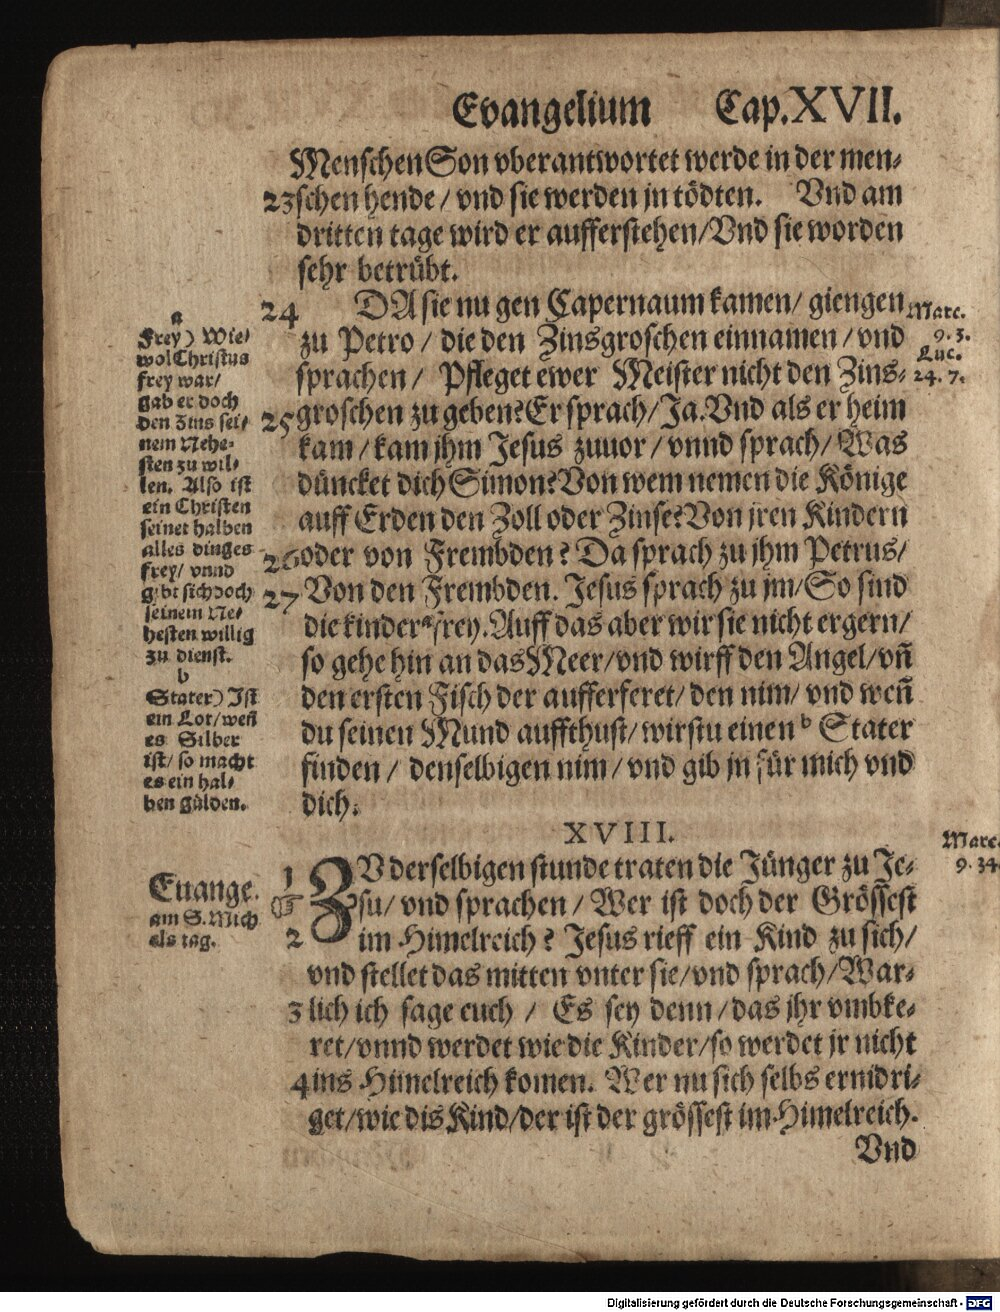 Evangelium Cap. XVII.
Menschen Son vberantwortet werde in der men-
23 schen hende / vnd sie werden jn tödten. Vnd am
dritten tage wird er aufferstehen/Vnd sie worden
sehr betrübt.
24 DA sie nu gen Capernaum kamen/ giengen
zu Petro / die den Zinsgroschen einnamen / vnd
sprachen / Pfleget ewer Meister nicht den Zins-
25 groschen zu geben? Er sprach/Ja. Vnd als er heim
kam / kam jhm Jesus zuuor / vnnd sprach/ Was
düncket dich Simon? Von wem nemen die Könige
auff Erden den Zoll oder Zinse? Von jren Kindern
26 oder von Frembden? Da sprach zu jhm Petrus/
27 Von den Frembden. Jesus sprach zu jm/ So sind
die kinder a frey. Auff das aber wir sie nicht ergern/
so gehe hin an das Meer/vnd wirff den Angel/vn̄
den ersten Fisch der aufferferet/ den nim/ vnd wen̄
du seinen Mund auffthust/ wirstu einen b Stater
finden / denselbigen nim / vnd gib jn für mich vnd
dich.
a
Frey) Wie-
wol Christus
frey war/
gab er doch
den Zins sei-
nem Nehe-
sten zu wil-
len. Also ist
ein Christen
seinet halben
alles dinges
frey/ vnnd
gibt sich doch
seinem Ne-
hesten willig
zu dienst.
b
Stater) Ist
ein Lot/wen̄
es Silber
ist/ so macht
es ein hal-
ben gülden.
Marc.
9. 3.
Luc.
24. 7.
XVIII.
1 ZV derselbigen stunde traten die Jünger zu Je-
su/ vnd sprachen / Wer ist doch der Grössest
2 im Himelreich? Jesus rieff ein Kind zu sich/
vnd stellet das mitten vnter sie/vnd sprach/War-
3 lich ich sage euch / Es sey denn / das jhr vmbke-
ret/vnnd werdet wie die Kinder/so werdet jr nicht
4 ins Himelreich komen. Wer nu sich selbs ernidri-
get/wie dis Kind/der ist der grössest im Himelreich.
Vnd
Euange.
am S. Mich
als tag.
Marc.
9. 34
Digitalisierung gefördert durch die Deutsche Forschungsgemeinschaft - DFG